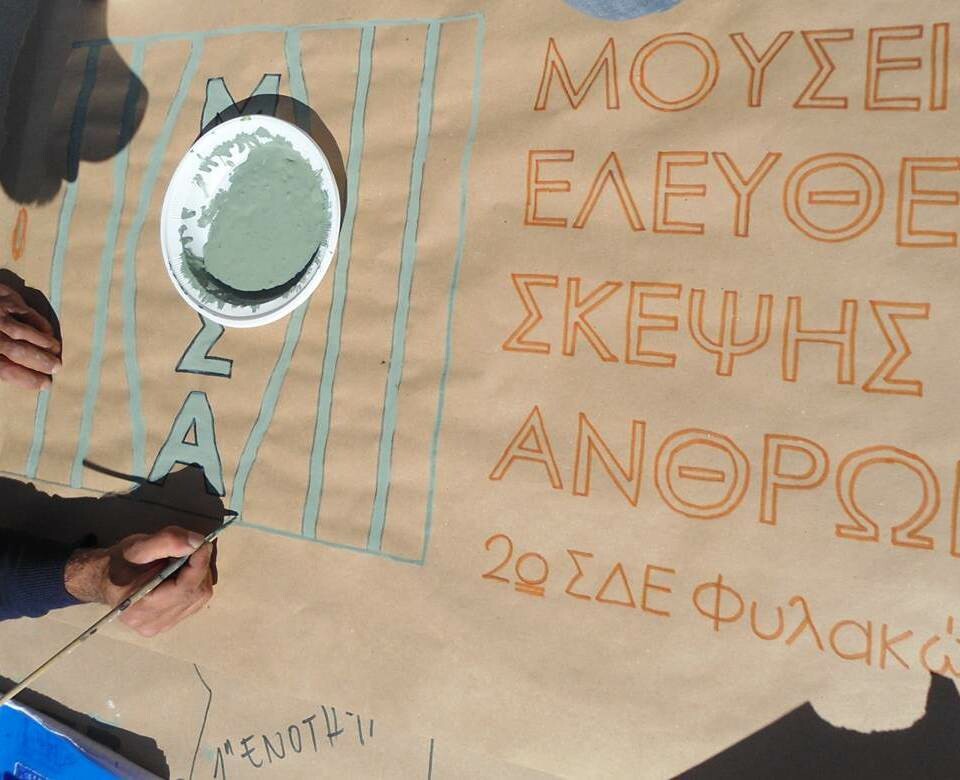 Μ
Σ
Α
ΜΟΥΣΕΙ
ΕΛΕΥΘΕ
ΣΚΕΨΗΣ
ΑΝΘΡΩ
2ο ΣΔΕ Φυλακώ
1η ΕΝΟΤΗΤ